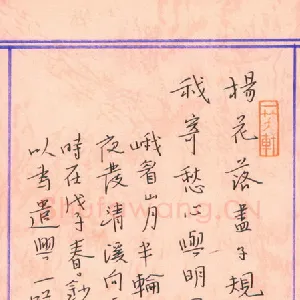 楊花落盡子規
我寄愁心與明
峨眉山月半輪
夜發清溪向
時在戊子春
以書遣興一